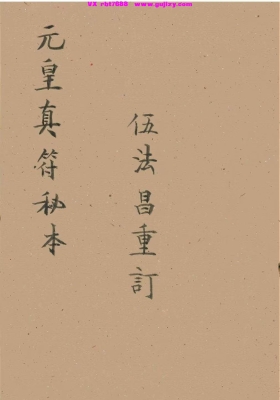 VX rbt7688  www.gujisy.com
元皇真符秘本
伍法昌重訂